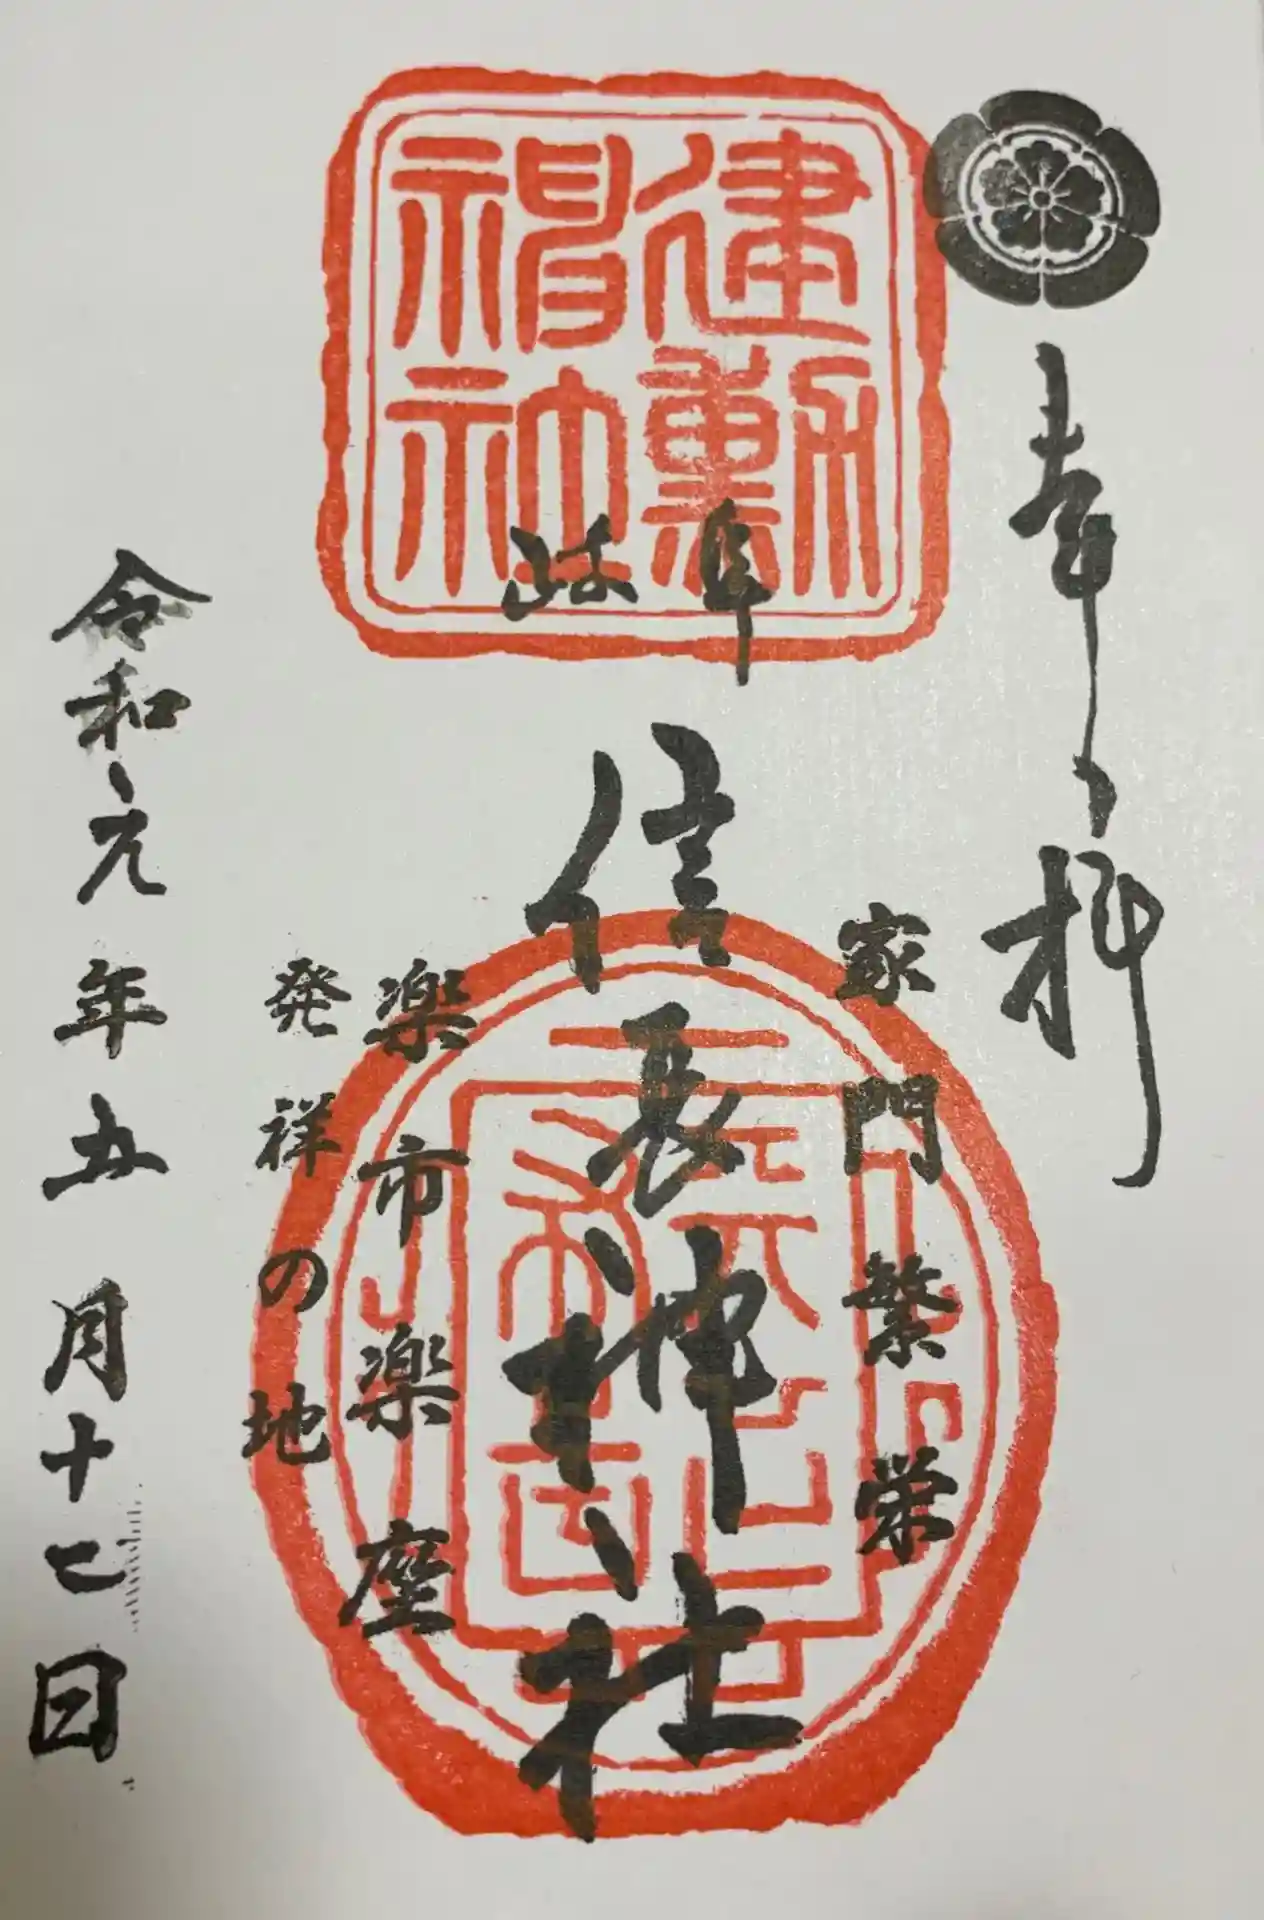 奉拝
家門繁栄
建勲
神社
岐阜
信長神社
楽市楽座
発祥の地
令和元年五月十二日